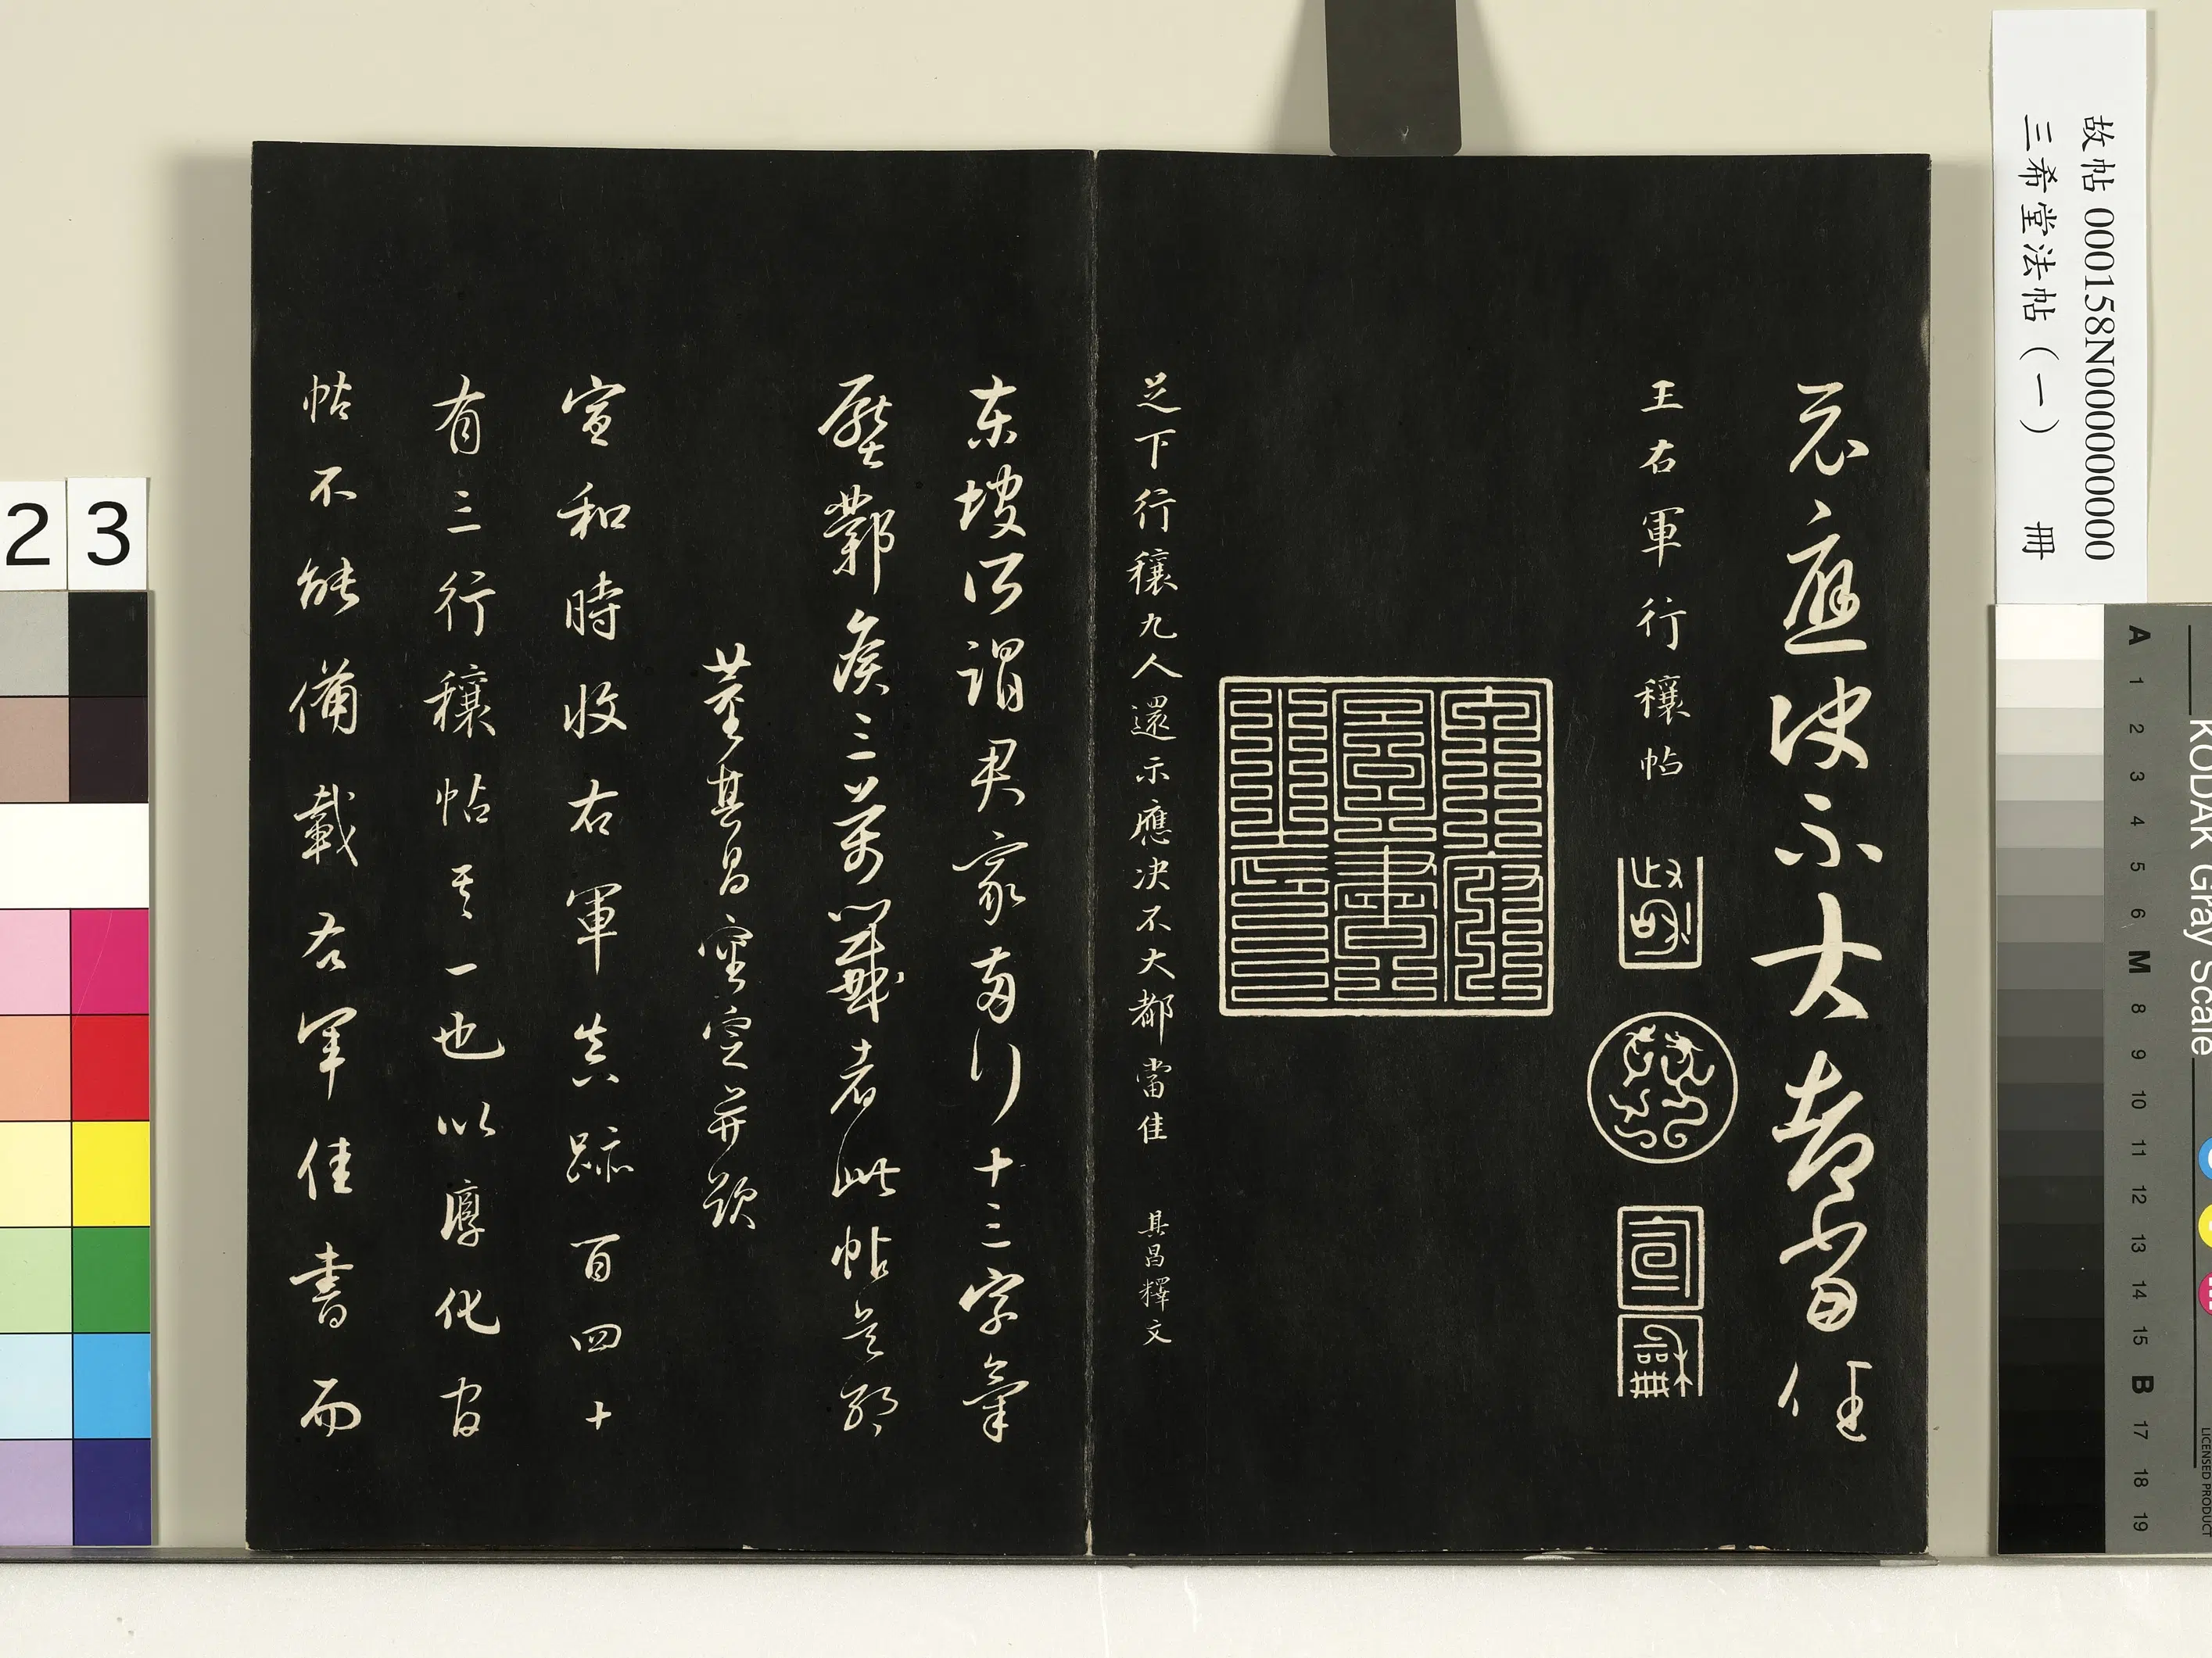 示應決不大都當佳
王右軍行穰帖
政和
宣
龢
足下行穰九人還示應决不大都當佳 其昌釋文
東坡所謂君家兩行十三字氣
壓鄴侯三萬籤者此帖是耶
董其昌審定并題
宣和時收右軍真跡百四十
有三行穰帖其一也以淳化官
帖不能備載右軍佳書而
故帖 000158N000000000
三希堂法帖（一） 冊
2 3
KODAK Gray Scale
A 1 2 3 4 5 6 M 8 9 10 11 12 13 14 15 B 17 18 19
LICENSED PRODUCT